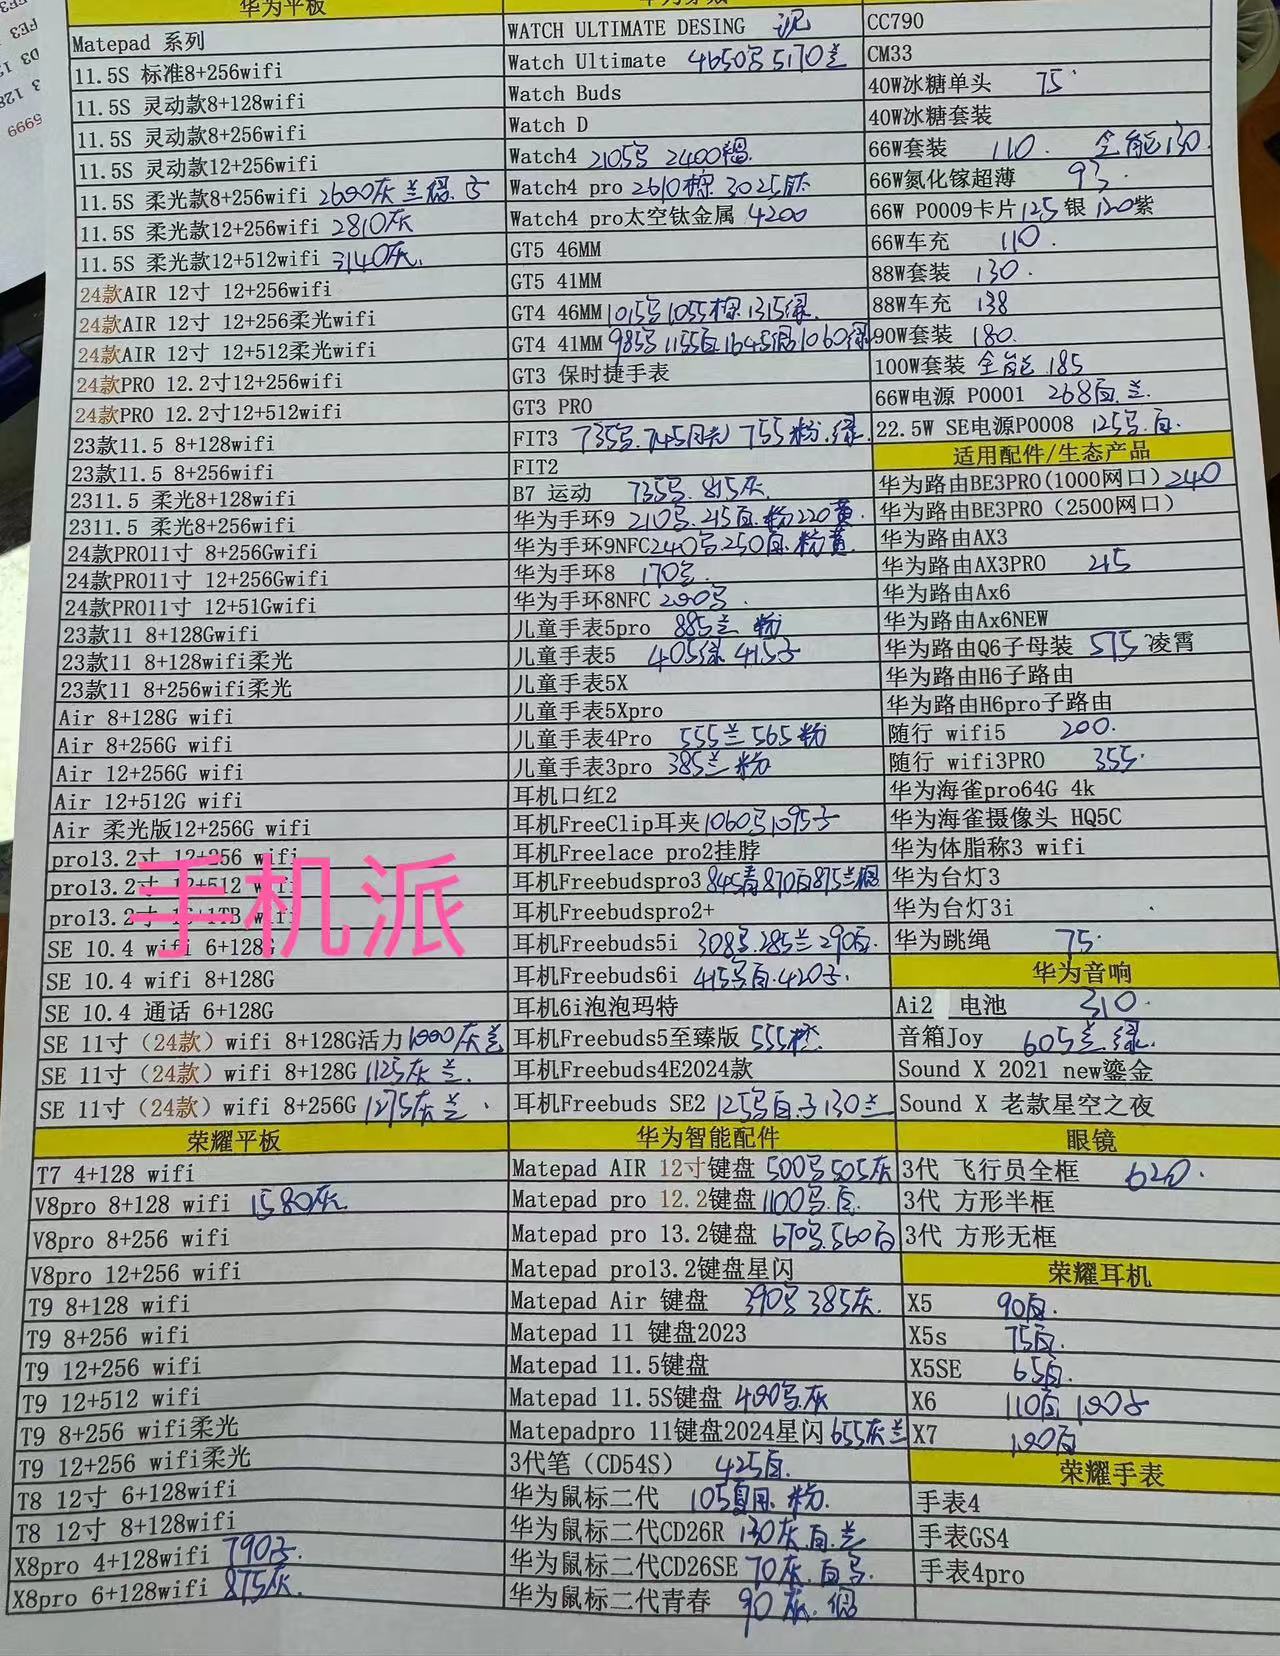 华为平板
Matepad 系列
11.5S 标准8+256wifi
11.5S 灵动款8+128wifi
11.5S 灵动款8+256wifi
11.5S 灵动款12+256wifi
11.5S 柔光款8+256wifi 2690灰 兰
11.5S 柔光款12+256wifi 2810灰
11.5S 柔光款12+512wifi 3140灰.
24款AIR 12寸 12+256wifi
24款AIR 12寸 12+256柔光wifi
24款AIR 12寸 12+512柔光wifi
24款PRO 12.2寸12+256wifi
24款PRO 12.2寸12+512wifi
23款11.5 8+128wifi
23款11.5 8+256wifi
2311.5 柔光8+128wifi
2311.5 柔光8+256wifi
24款PRO11寸 8+256Gwifi
24款PRO11寸 12+256Gwifi
24款PRO11寸 12+51Gwifi
23款11 8+128Gwifi
23款11 8+128wifi柔光
23款11 8+256wifi柔光
Air 8+128G wifi
Air 8+256G wifi
Air 12+256G wifi
Air 12+512G wifi
Air 柔光版12+256G wifi
pro13.2寸 12+256 wifi
pro13.2寸 12+512 wifi
pro13.2寸 1TB wifi
手机派
SE 10.4 wifi 6+128G
SE 10.4 wifi 8+128G
SE 10.4 通话 6+128G
SE 11寸（24款）wifi 8+128G活力 灰兰
SE 11寸（24款）wifi 8+128G 1125灰 兰.
SE 11寸（24款）wifi 8+256G 1275灰 兰
荣耀平板
T7 4+128 wifi
V8pro 8+128 wifi 1580灰
V8pro 8+256 wifi
V8pro 12+256 wifi
T9 8+128 wifi
T9 8+256 wifi
T9 12+256 wifi
T9 12+512 wifi
T9 8+256 wifi柔光
T9 12+256 wifi柔光
T8 12寸 6+128wifi
T8 12寸 8+128wifi
X8pro 4+128wifi 790
X8pro 6+128wifi 875灰.
WATCH ULTIMATE DESING
Watch Ultimate 4650 5170兰
Watch Buds
Watch D
Watch4 2105 2400
Watch4 pro 2610棕 3025
Watch4 pro太空钛金属 4200
GT5 46MM
GT5 41MM
GT4 46MM 1015 1055棕 1315绿
GT4 41MM 985 1155白 1645 1060绿
GT3 保时捷手表
GT3 PRO
FIT3 735 745 755粉.绿
FIT2
B7 运动 735 815灰
华为手环9 210 215白.粉220黄
华为手环9NFC 240 250白.粉黄
华为手环8 170
华为手环8NFC 200
儿童手表5pro 885兰 粉
儿童手表5 405绿 415
儿童手表5X
儿童手表5Xpro
儿童手表4Pro 555兰 565粉
儿童手表3pro 385兰 粉
耳机口红2
耳机FreeClip耳夹 1060 1095
耳机Freelace pro2挂脖
耳机Freebudspro3 845青 870白 875兰
耳机Freebudspro2+
耳机Freebuds5i 308 285兰 290白.
耳机Freebuds6i 415 白.420
耳机6i泡泡玛特
耳机Freebuds5至臻版 555橙
耳机Freebuds4E2024款
耳机Freebuds SE2 125 白 130兰
华为智能配件
Matepad AIR 12寸键盘 500 505灰
Matepad pro 12.2键盘 1100 白
Matepad pro 13.2键盘 670 560白
Matepad pro13.2键盘星闪
Matepad Air 键盘 390 385灰.
Matepad 11 键盘2023
Matepad 11.5键盘
Matepad 11.5S键盘 400 灰
Matepadpro 11键盘2024星闪 655灰兰
3代笔（CD54S） 425白.
华为鼠标二代 105 粉.
华为鼠标二代CD26R 130灰.白.兰
华为鼠标二代CD26SE 70灰.白
华为鼠标二代青春 90灰
CC790
CM33
40W冰糖单头 75
40W冰糖套装
66W套装 110 全能130
66W氮化镓超薄 93
66W P0009卡片 125银 120紫
66W车充 110
88W套装 130
88W车充 138
90W套装 180
100W套装 全能 185
66W电源 P0001 268白.兰
22.5W SE电源P0008 125 白
适用配件/生态产品
华为路由BE3PRO(1000网口) 240
华为路由BE3PRO（2500网口）
华为路由AX3
华为路由AX3PRO 215
华为路由Ax6
华为路由Ax6NEW
华为路由Q6子母装 575 凌霄
华为路由H6子路由
华为路由H6pro子路由
随行 wifi5 200
随行 wifi3PRO 355
华为海雀pro64G 4k
华为海雀摄像头 HQ5C
华为体脂称3 wifi
华为台灯3
华为台灯3i
华为跳绳 75
华为音响
Ai2 电池 310
音箱Joy 605兰.绿
Sound X 2021 new鎏金
Sound X 老款星空之夜
眼镜
3代 飞行员全框 620
3代 方形半框
3代 方形无框
荣耀耳机
X5 90白.
X5s 75白.
X5SE 65白.
X6 110白
X7 白
荣耀手表
手表4
手表GS4
手表4pro